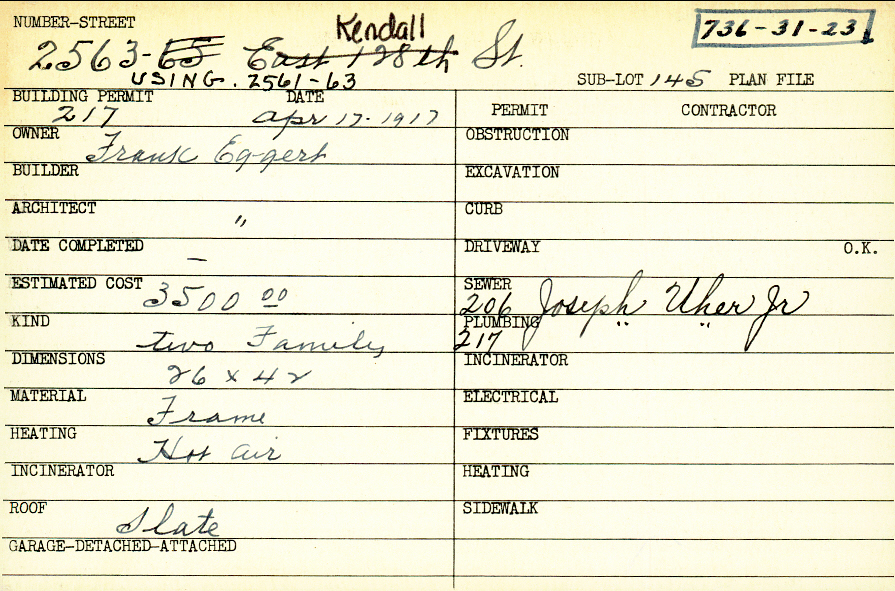 NUMBER-STREET
Kendall
736-31-23
2563-65 East 128th St.
USING. 2561-63
SUB-LOT 145 PLAN FILE
BUILDING PERMIT DATE
217 Apr 17-1917
PERMIT CONTRACTOR
OWNER Frank Eggert
OBSTRUCTION
BUILDER
EXCAVATION
ARCHITECT "
CURB
DATE COMPLETED —
DRIVEWAY O.K.
ESTIMATED COST 3500 00
SEWER
206 Joseph Uher Jr
KIND two Family
PLUMBING
217 " "
DIMENSIONS 26 x 42
INCINERATOR
MATERIAL Frame
ELECTRICAL
HEATING Hot Air
FIXTURES
INCINERATOR
HEATING
ROOF Slate
SIDEWALK
GARAGE-DETACHED-ATTACHED